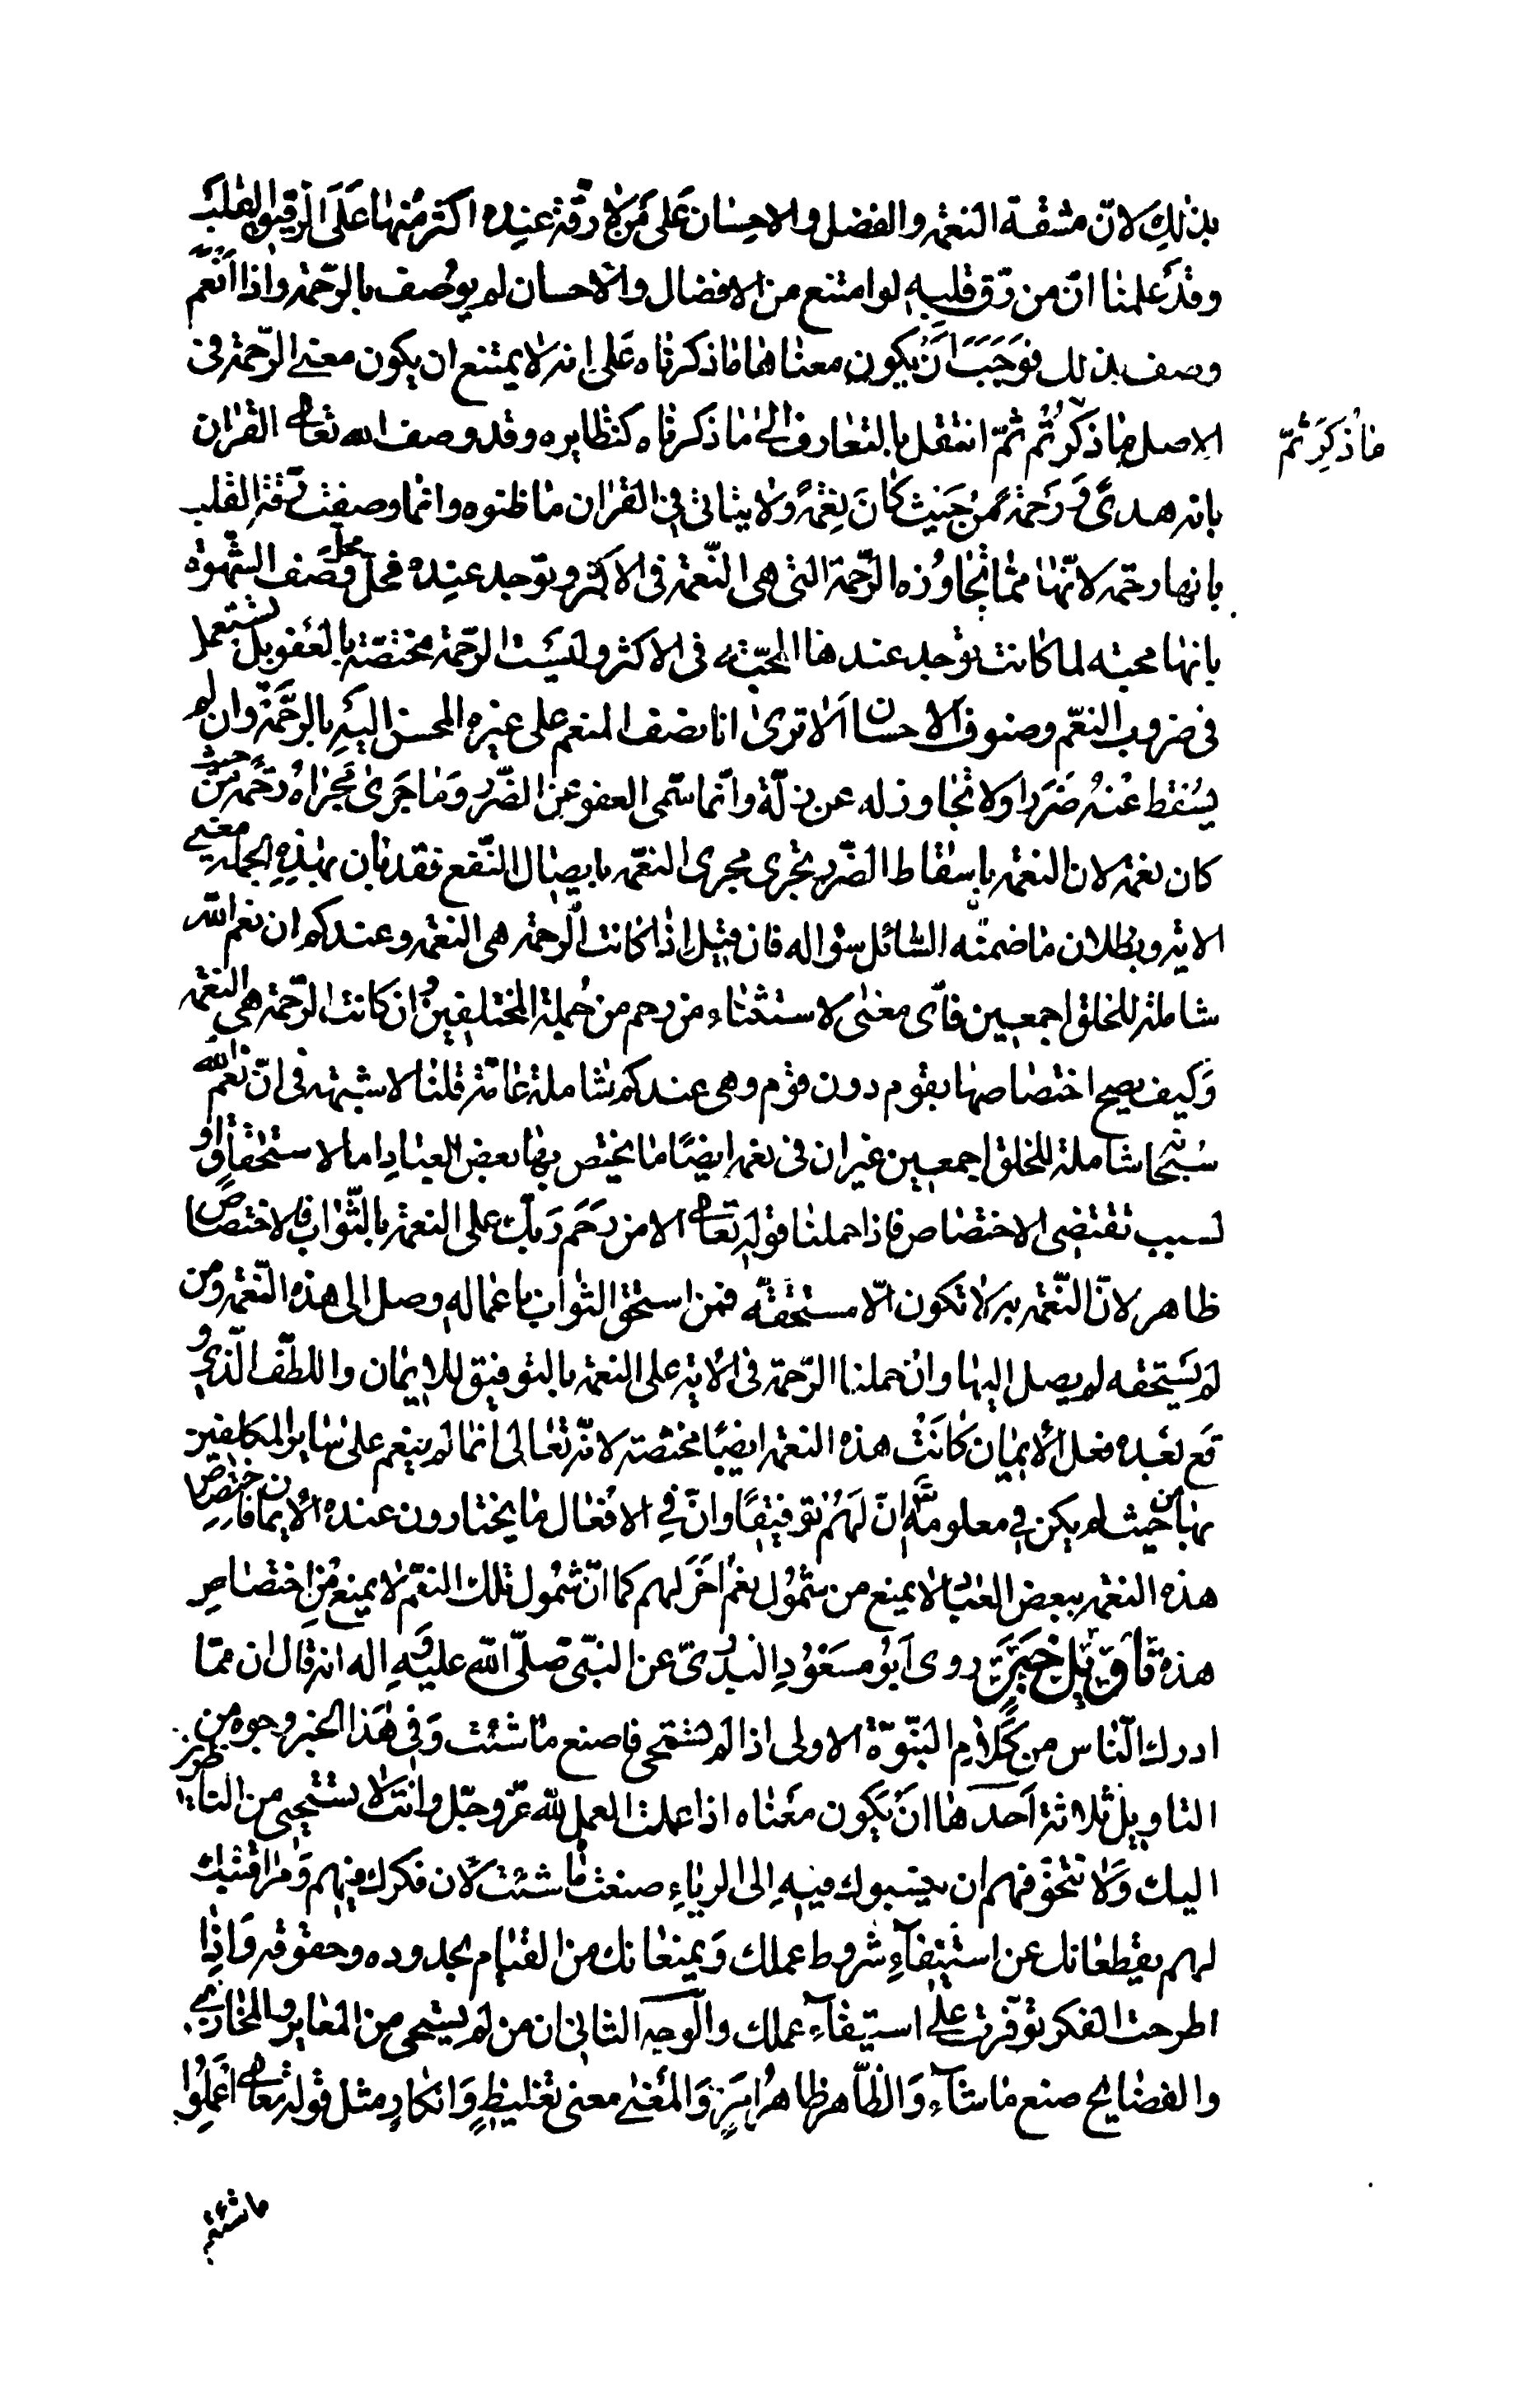 بذلك لانّ مشقة النعمة والفضل والاحسان على من لا رقّة عنده اكثر منها على الرقيق القلب
وقد علمنا انّ من رقّ قلبه لو امتنع من الافضال والاحسان لم يوصف بالرّحمة واذا انعم
وصف بذلك فوجب ان يكون معناها ما ذكرناه على انه لا يمتنع ان يكون معنى الرّحمة فى
الاصل ما ذكرتم ثمّ انتقل بالتعارف الى ما ذكرناه كنظايره وقد وصف الله تعالى القران
ما ذكر ثمّ
بانه هدى ورحمة من حيث كان نعمة ولا يتاتى فى القران ما ظنوه وانما وصفت رقة القلب
بانها رحمه لانّها ممّا تجاوره الرّحمة التى هى النّعمة فى الاكثر وتوجد عنده فحل محل وصف الشهوة
بانها محبته لما كانت توجد عندها المحبّة فى الاكثر وليست الرّحمة مختصّة بالعفو بل تستعمل
فى ضروب النعم وصنوف الاحسان الا ترى انا نصف المنعم على غيره المحسن اليه بالرّحمة وان لم
يسقط عنه ضررا ولا تجاوز له عن زلّة وانّما سمّى العفو عن الضّرر وما جرى مجراه رحمة من حيث
كان نعمة لان النعمة باسقاط الضّرر تجرى مجرى النعمة بايصال النّفع فقد بان بهذه الجملة معنى
الاية وبطلان ما ضمنّه السّائل سؤاله فان قيل اذا كانت الرّحمة هى النعمة وعندكم ان نعم الله
شاملة للخلق اجمعين فاّى معنى لاستثناء من رحم من جملة المختلفين ان كانت الرّحمة هى النعمة
وكيف يصح اختصاصها بقوم دون قوم وهى عندكم شاملة عامّة قلنا لا شبهة فى انّ نعم الله
سبحانه شاملة للخلق اجمعين غير ان فى نعمه ايضًا ما يختص بها بعض العباد اما لاستحقاق او
لسبب تقتضى الاختصاص فاذا حملنا قوله تعالى الا من رحم ربّك على النعمة بالثّواب فالاختصاص
ظاهر لانّ النّعمة به لا تكون الّا مستحقة فمن استحق الثواب باعماله وصل الى هذه النّعمة ومن
لم يستحقه لم يصل اليها وان حملنا الرّحمة فى الاية على النعمة بالتوفيق للايمان واللطف الّذى و
قع بعده فعل الايمان كانت هذه النعمة ايضًا مختصّة لانّه تعالى انما لم ينعم على ساير المكلفين
بها من حيث لم يكن فى معلومه انّ لهم توفيقًا وانّ فى الافعال ما يختارون عنده الايمان فاختصاص
هذه النعمة ببعض العباد لا يمنع من شمول نعم اخر لهم كما انّ شمول تلك النعم لا يمنع من اختصاص
هذه تاويل خبر روى ابو مسعود البدرىّ عن النبّى صلّى الله عليه واله انه قال ان ممّا
ادرك النّاس من كلام النبّوة الاولى اذا لم تستحى فاصنع ما شئت وفى هذا الخبر وجوه من
التاويل ثلاثة احدها ان يكون معناه اذا عملت العمل لله عزّ وجلّ وانت لا تستحيى من الناظرين
اليك ولا تتخوّفهم ان ينسبوك فيه الى الرياء صنعت ما شئت لان فكرك فيهم ومراقبتك
لهم يقطعانك عن استيفاء شروط عملك ويمنعانك من القيام بحدوده وحقوقه واذا
اطرحت الفكر توفّرت على استيفاء عملك والوجه الثانى ان من لم يستحى من المعاير والمخازى
والفضايح صنع ما شاء والظّاهر ظاهر امر والمعنى معنى تغليظ وانكار مثل قوله تعالى اعملوا
ما شئتم